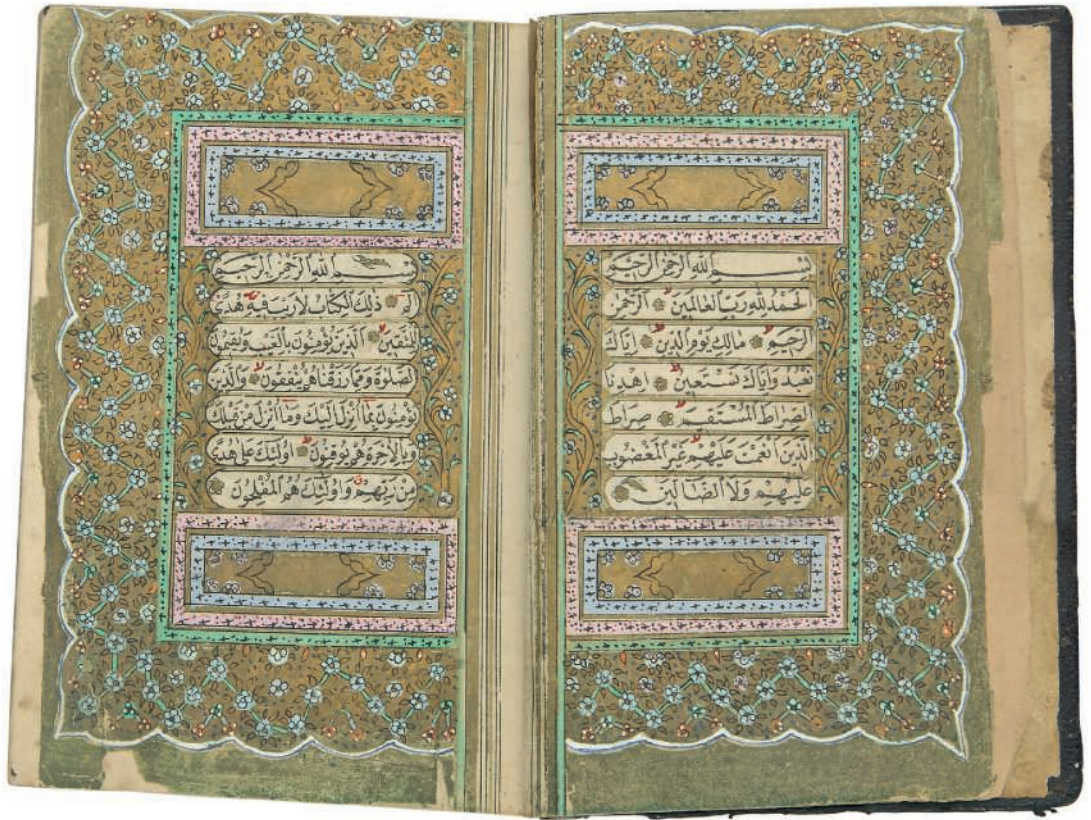 بِسْمِ اللهِ الرَّحْمٰنِ الرَّحِيمِ
اَلْحَمْدُ لِلّٰهِ رَبِّ الْعَالَمِينَ اَلرَّحْمٰنِ
الرَّحِيمِ مَالِكِ يَوْمِ الدِّينِ اِيَّاكَ
نَعْبُدُ وَاِيَّاكَ نَسْتَعِينُ اِهْدِنَا
الصِّرَاطَ الْمُسْتَقِيمَ صِرَاطَ
الَّذِينَ اَنْعَمْتَ عَلَيْهِمْ غَيْرِ الْمَغْضُوبِ
عَلَيْهِمْ وَلَا الضَّالِّينَ
بِسْمِ اللهِ الرَّحْمٰنِ الرَّحِيمِ
الٓمٓ ذٰلِكَ الْكِتَابُ لَا رَيْبَ فِيهِ هُدًى
لِلْمُتَّقِينَ اَلَّذِينَ يُؤْمِنُونَ بِالْغَيْبِ وَيُقِيمُونَ
الصَّلٰوةَ وَمِمَّا رَزَقْنَاهُمْ يُنْفِقُونَ وَالَّذِينَ
يُؤْمِنُونَ بِمَا اُنْزِلَ اِلَيْكَ وَمَا اُنْزِلَ مِنْ قَبْلِكَ
وَبِالْاٰخِرَةِ هُمْ يُوقِنُونَ اُولٰئِكَ عَلٰى هُدًى
مِنْ رَبِّهِمْ وَاُولٰئِكَ هُمُ الْمُفْلِحُونَ